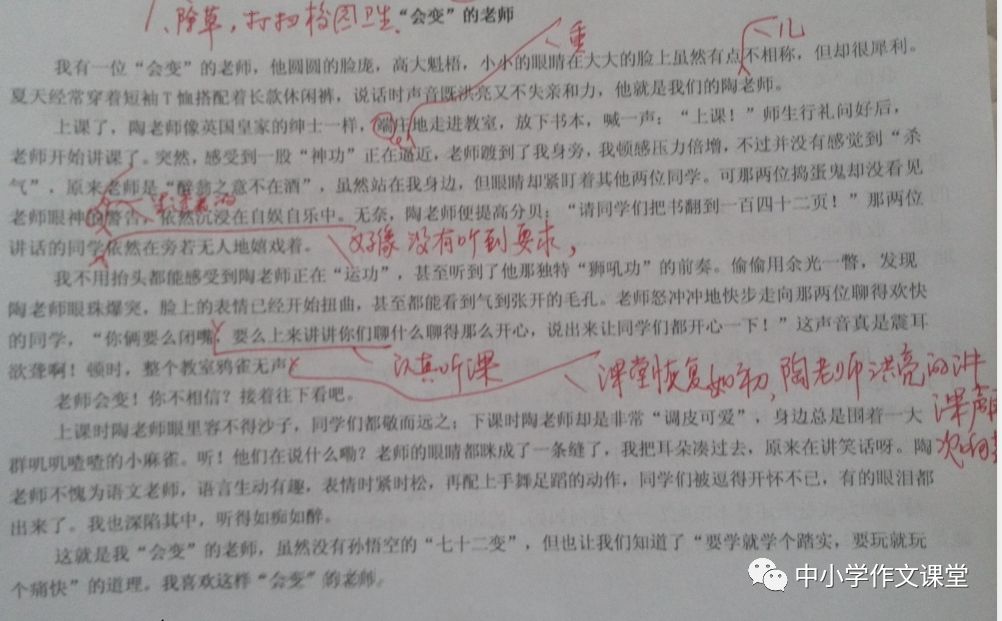 1、除草，打扫校园卫生 “会变”的老师
儿
垂
我有一位“会变”的老师，他圆圆的脸庞，高大魁梧，小小的眼睛在大大的脸上虽然有点不相称，但却很犀利。
夏天经常穿着短袖T恤搭配着长款休闲裤，说话时声音既洪亮又不失亲和力，他就是我们的陶老师。
上课了，陶老师像英国皇家的绅士一样，端庄地走进教室，放下书本，喊一声：“上课！”师生行礼问好后，
老师开始讲课了。突然，感受到一股“神功”正在逼近，老师踱到了我身旁，我顿感压力倍增，不过并没有感觉到“杀
气”，原来老师是“醉翁之意不在酒”，虽然站在我身边，但眼睛却紧盯着其他两位同学。可那两位捣蛋鬼却没看见
老师眼神的警告，依然沉浸在自娱自乐中。无奈，陶老师便提高分贝：“请同学们把书翻到一百四十二页！”那两位
讲话的同学依然在旁若无人地嬉戏着。
好像没有听到要求，
我不用抬头都能感受到陶老师正在“运功”，甚至听到了他那独特“狮吼功”的前奏。偷偷用余光一瞥，发现
陶老师眼珠爆突，脸上的表情已经开始扭曲，甚至都能看到气到张开的毛孔。老师怒冲冲地快步走向那两位聊得欢快
的同学，“你俩要么闭嘴，要么上来讲讲你们聊什么聊得那么开心，说出来让同学们都开心一下！”这声音真是震耳
欲聋啊！顿时，整个教室鸦雀无声
认真听课
课堂恢复如初，陶老师洪亮的讲
课声
老师会变！你不相信？接着往下看吧。
上课时陶老师眼里容不得沙子，同学们都敬而远之；下课时陶老师却是非常“调皮可爱”，身边总是围着一大
群叽叽喳喳的小麻雀。听！他们在说什么嘞？老师的眼睛都眯成了一条缝了，我把耳朵凑过去，原来在讲笑话呀。陶
老师不愧为语文老师，语言生动有趣，表情时紧时松，再配上手舞足蹈的动作，同学们被逗得开怀不已，有的眼泪都
出来了。我也深陷其中，听得如痴如醉。
这就是我“会变”的老师，虽然没有孙悟空的“七十二变”，但也让我们知道了“要学就学个踏实，要玩就玩
个痛快”的道理。我喜欢这样“会变”的老师。
中小学作文课堂